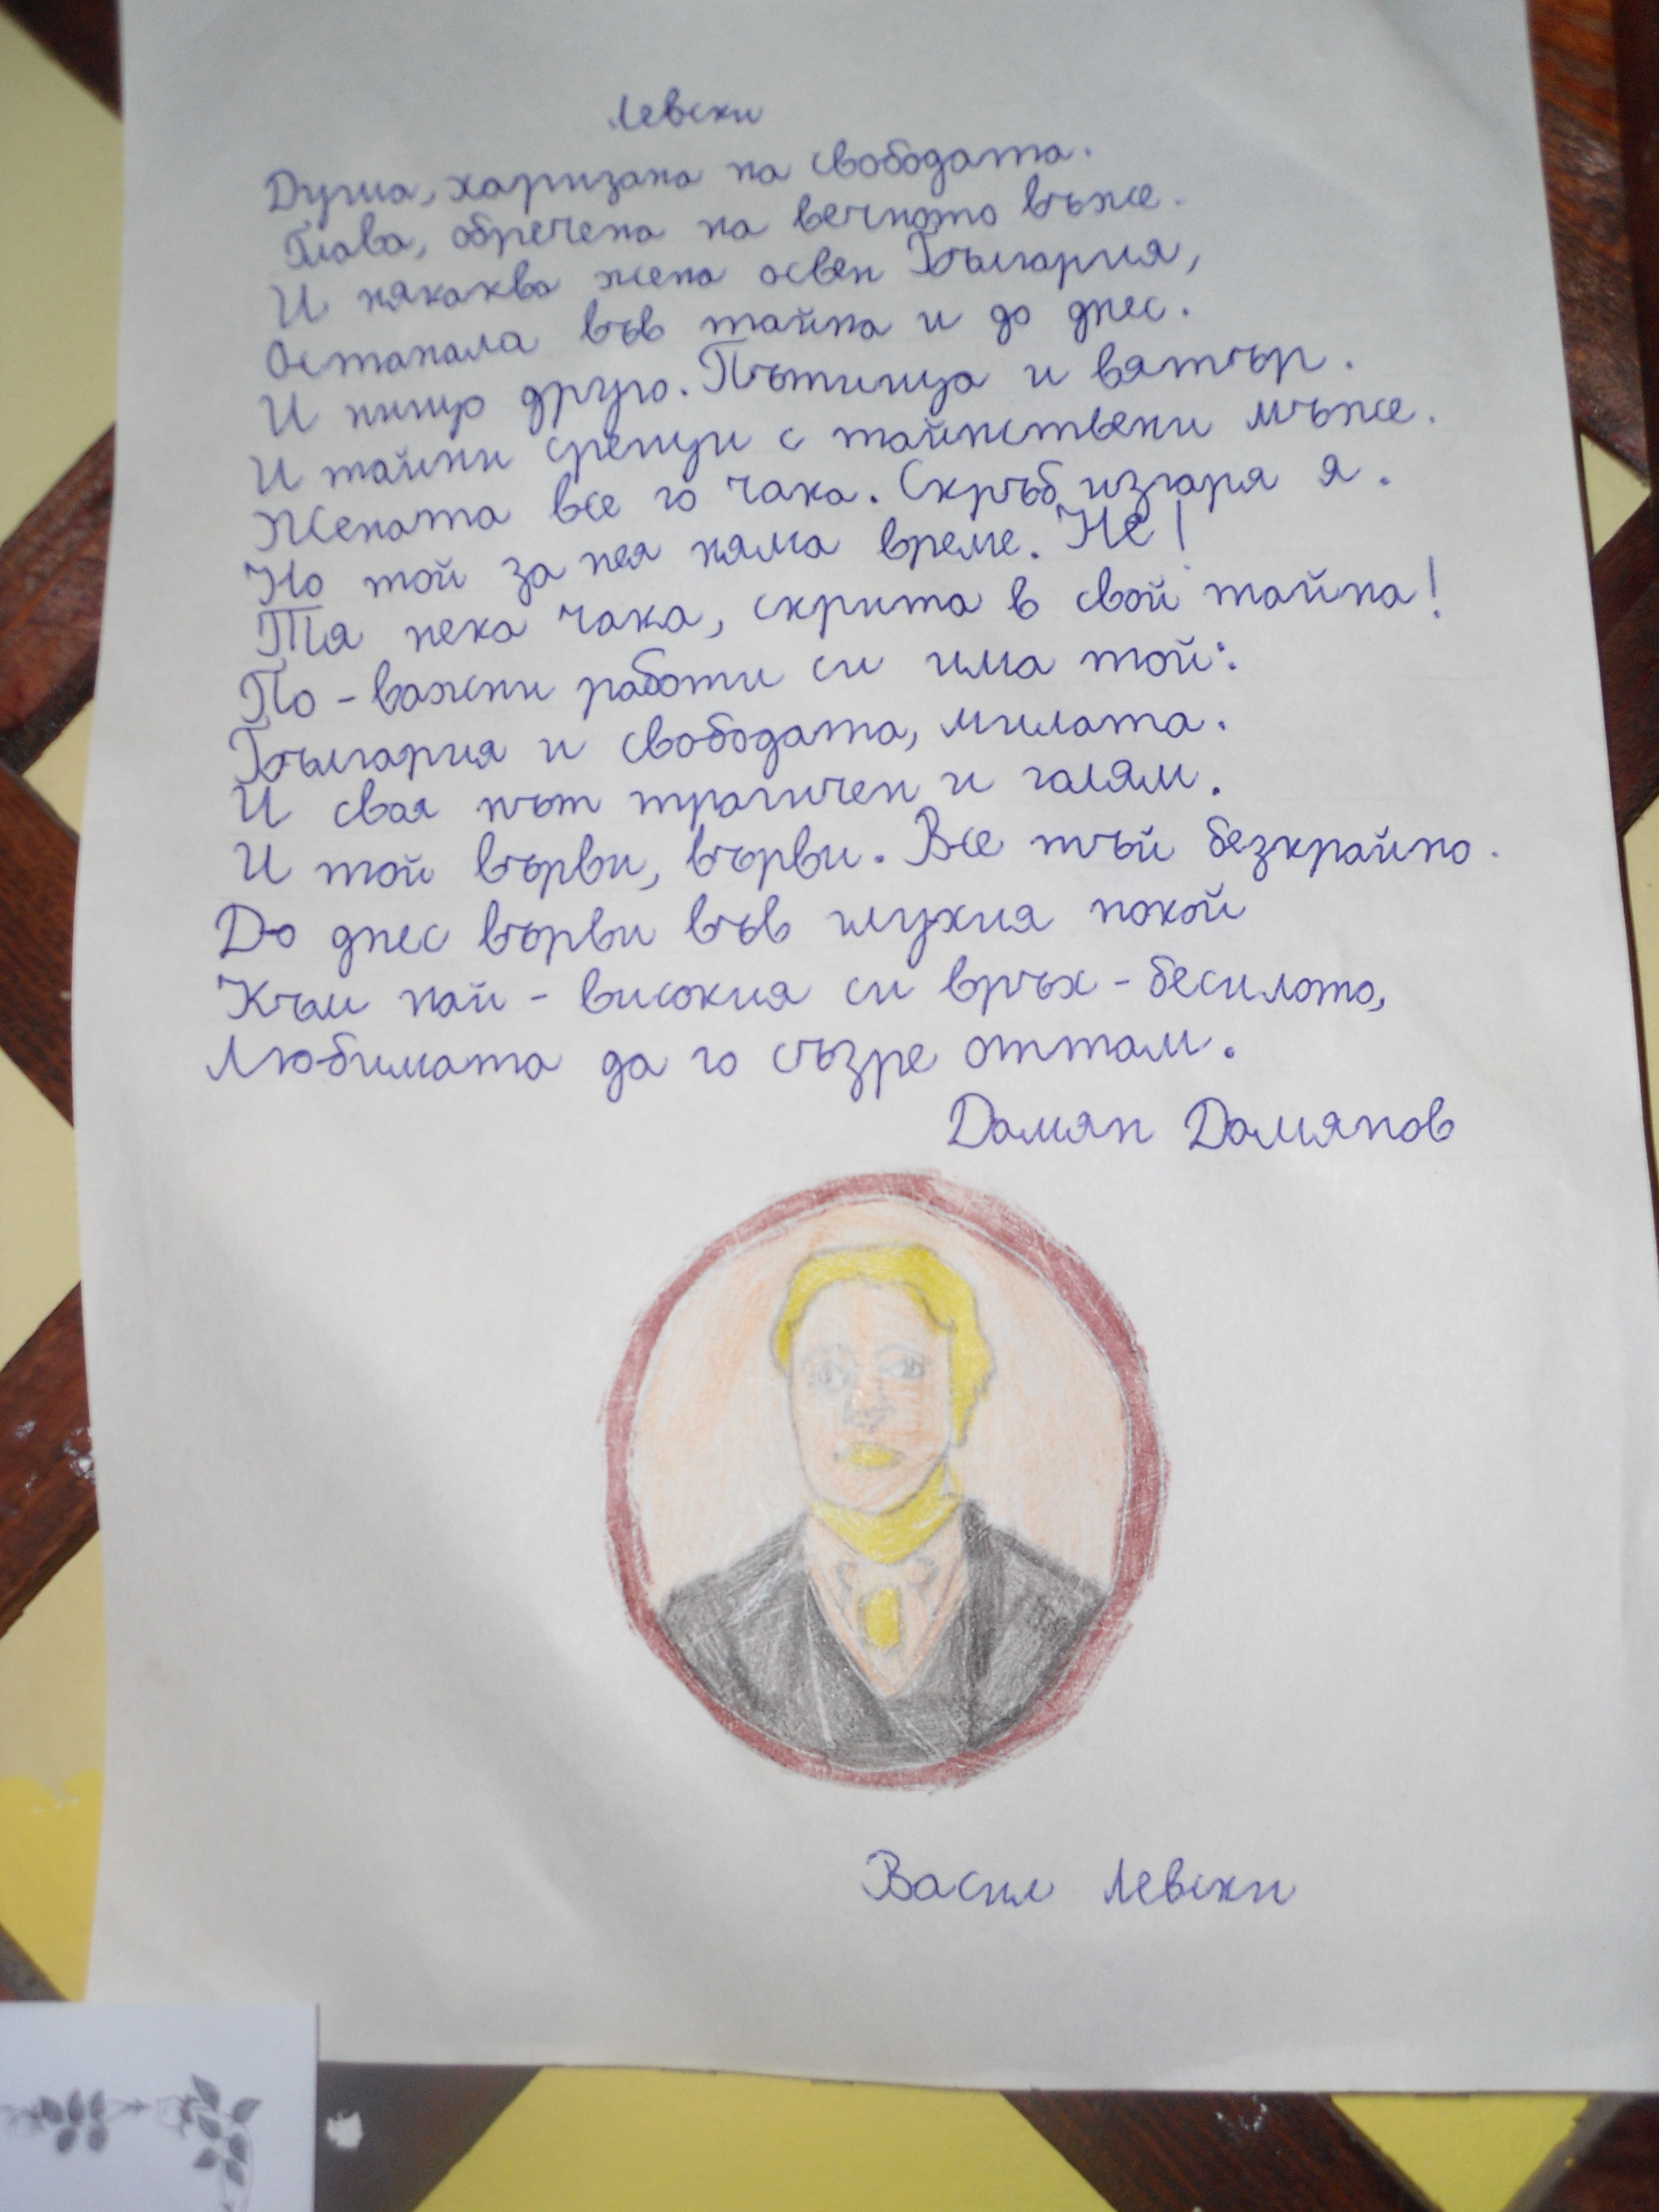 Левски
Душа, харизана на свободата.
Глава, обречена на вечното въже.
И някаква жена освен България,
Останала във тайна и до днес.
И нищо друго. Пътища и вятър.
И тайни срещи с тайнствени мъже.
Жената все го чака. Скръб изгаря я.
Но той за нея няма време. Не!
Тя нека чака, скрита в свой тайна!
По-важни работи си има той:
България и свободата, милата.
И своя път трагичен и голям.
И той върви, върви. Все тъй безкрайно.
До днес върви във глухия покой
Към най-високия си връх - бесилото,
Любимата да го съзре оттам.
Дамян Дамянов
Васил Левски